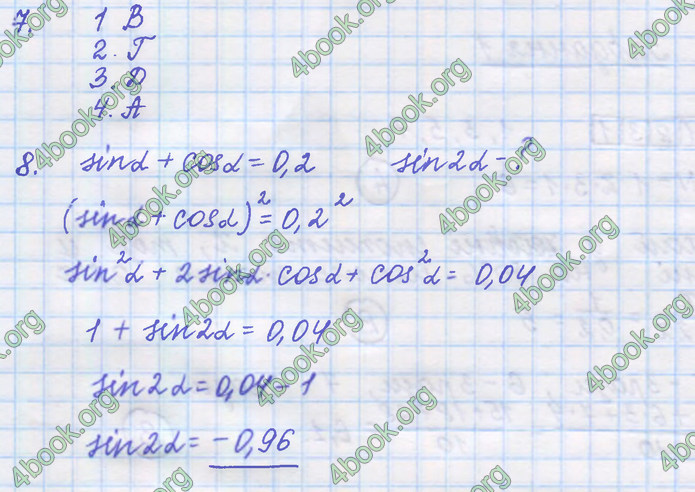 7. 1 В
2. Г
3. Д
4. А
8. sinα + cosα = 0,2 sin2α - ?
(sinα + cosα)² = 0,2²
sin²α + 2 sinα · cosα + cos²α = 0,04
1 + sin2α = 0,04
sin2α = 0,04 - 1
sin2α = -0,96
4book.org